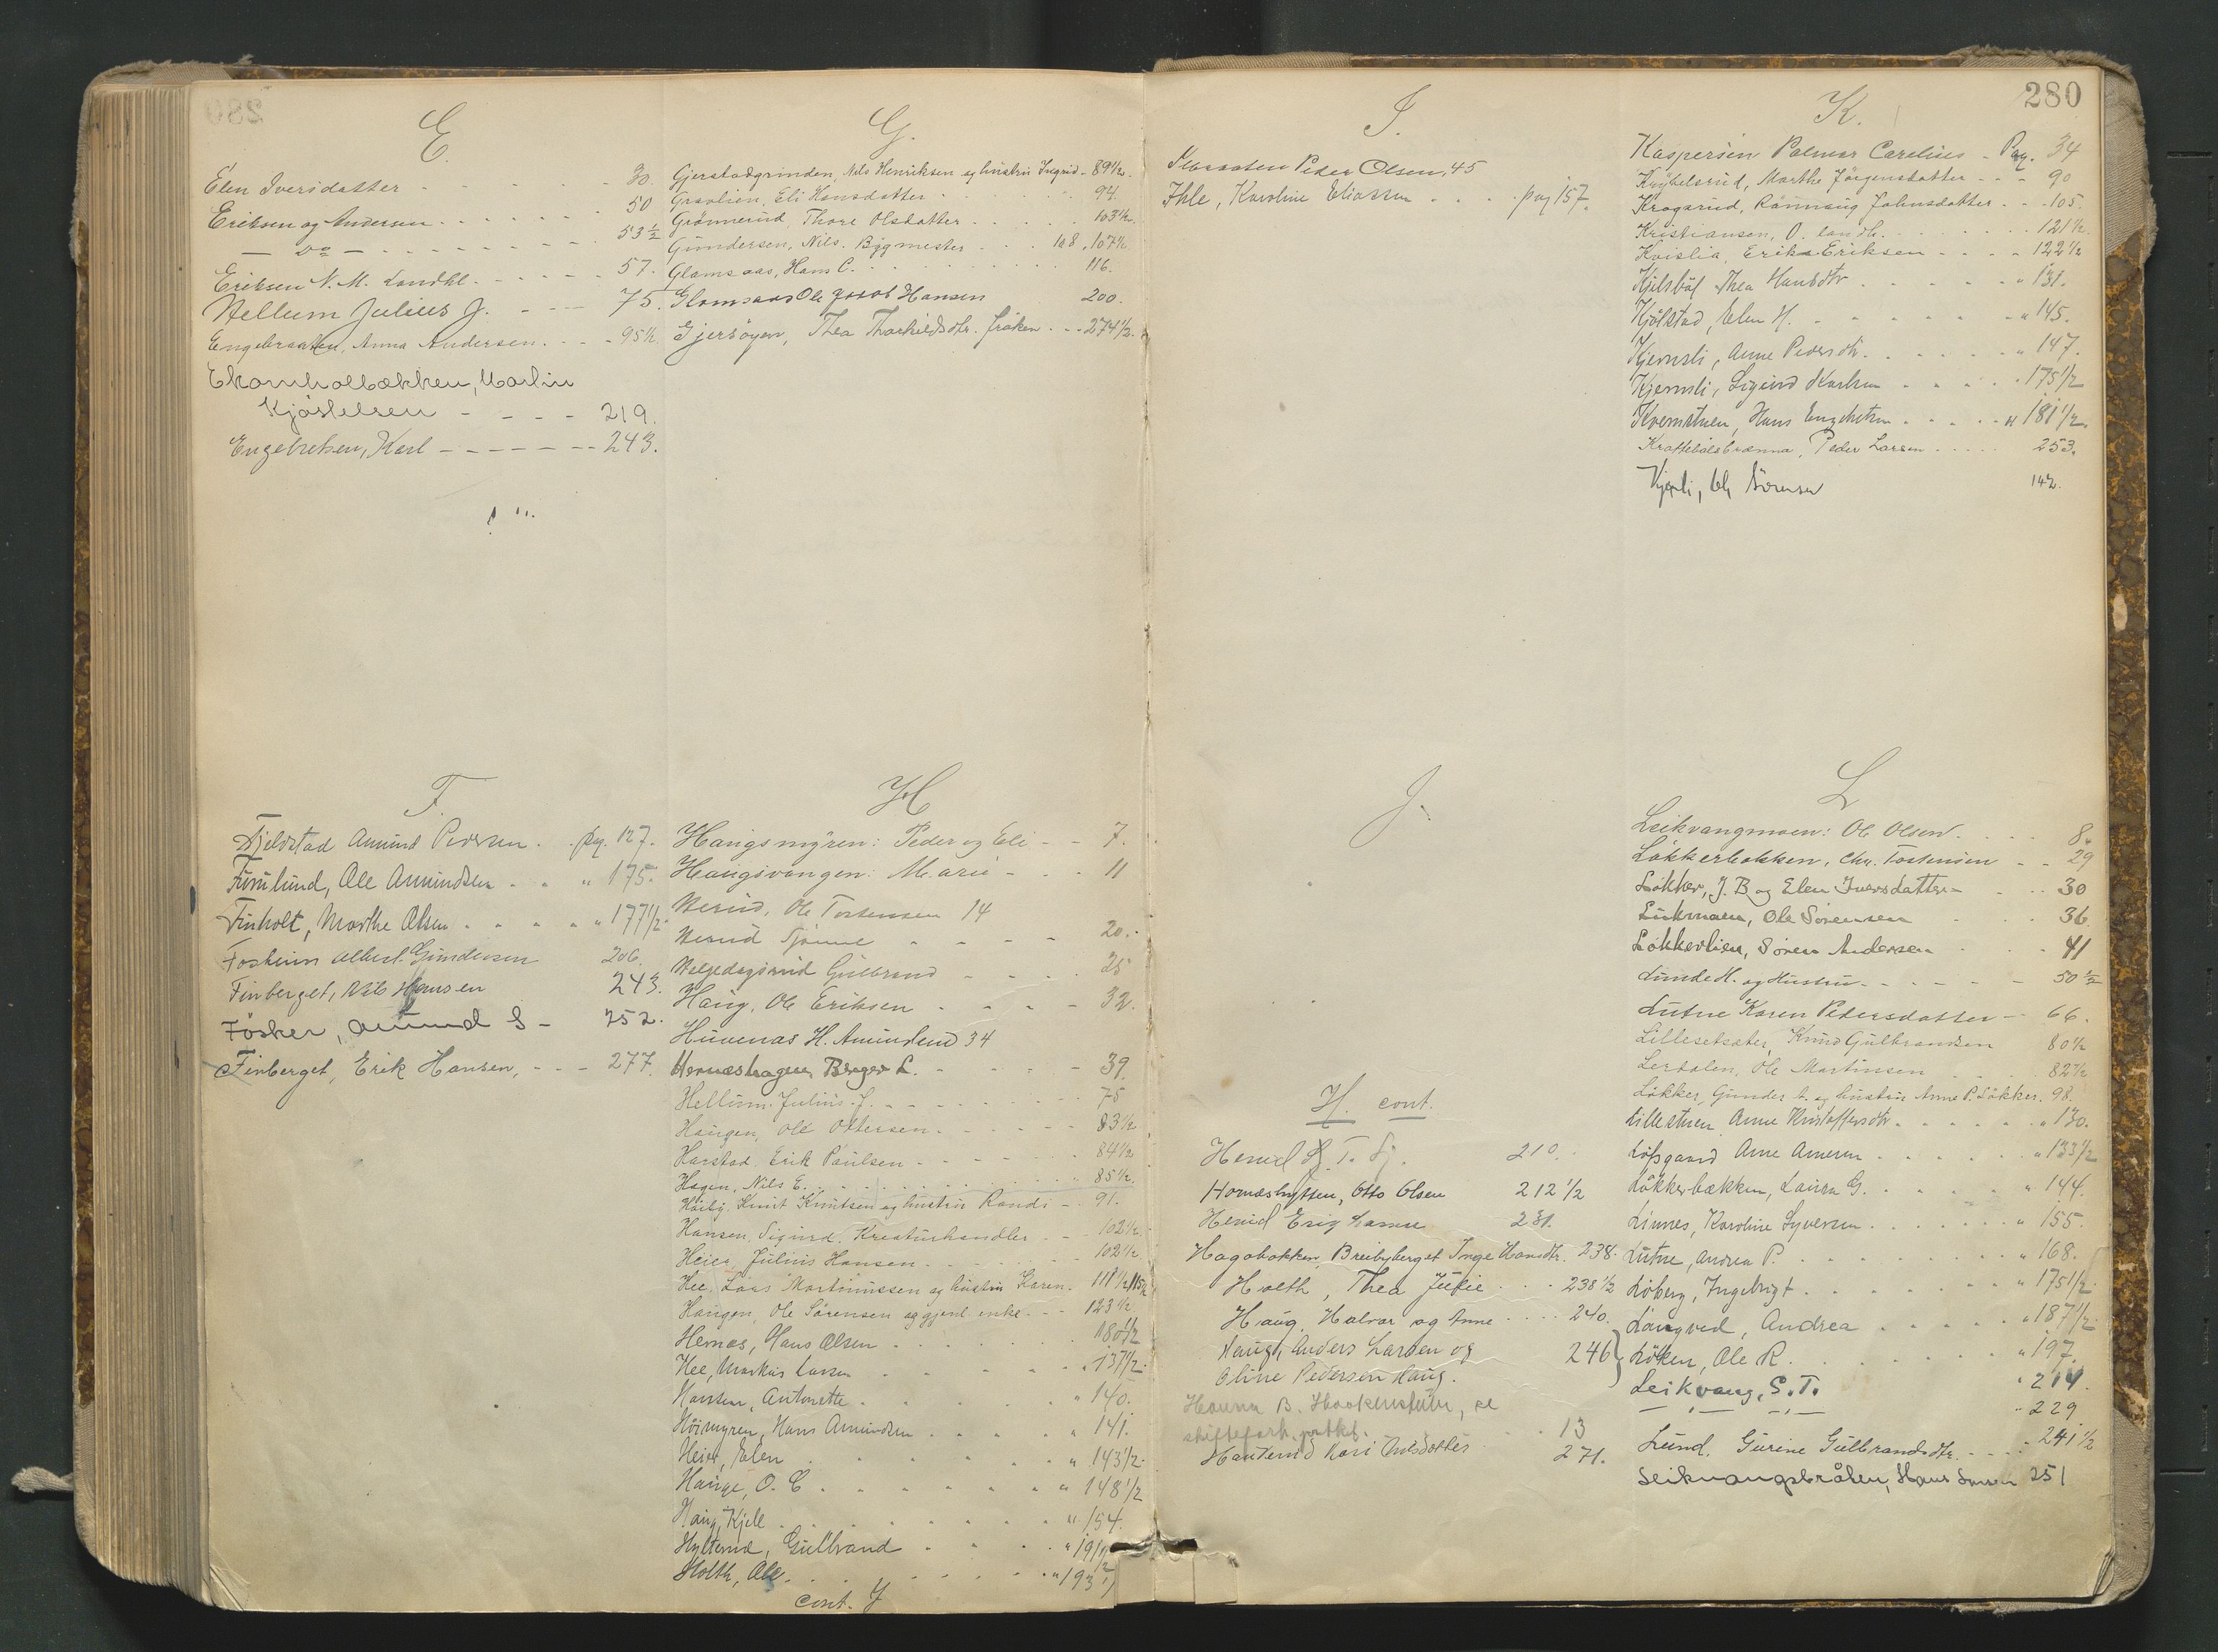 280
E.
Elen Iversdatter - - - - - 30.
Eriksen og Andersen - - - - - 50
— do — - - - - - 53 ½
Eriksen N. M. Landhl. - - - - - 57.
Hellum Julius J. - - - 75.
Engebraaten, Anna Andersen. - - - 95½
Ekornholbækken, Martin
Kjöstelsen - - - - 219.
Engebretsen, Karl - - - - - - - 243.
F.
Fjeldstad Amund Pedersen . . pag. 127.
Furulund, Ole Amundsen - - " 175.
Finholt, Marthe Olsen - - - - " 177½
Fosheim Albert Gundersen 206.
Finberget, Nils Hansen 243.
Fösker, Amund S - 252.
Finberget, Erik Hansen, - - - 277.
G.
Gjerstadgrinden, Nils Henriksen og hustru Ingrid - 89½.
Graolien, Eli Hansdatter 94.
Grönnerud, Thore Olsdatter 103½
Gundersen, Nils. Bygmester 108, 107½
Glomsaas, Hans C. 116.
Glomsaas Ole Jacob Hansen 200.
Gjersöyen, Thea Thorkildsdtr. fröken . - - 274½.
H
Haugsmyren: Peder og Eli - - 7.
Haugsvangen: Marie - - - 11
Herud, Ole Torstensen 14
Herud Tjönne - - - - 20.
Helgedagsrud Gulbrand - - - 25
Haug, Ole Eriksen - - - - 32.
Huvenas H. Amundsen 34
Hornæshagen Birger L. - - - - 39.
Hellum. Julius. J. - - - - - 75
Haugen, Ole Ottersen. - - - - - 83½
Harstad, Erik Paulsen - - - - - 84½
Hagen, Nils E. 85½.
Haiby. Knut Knutsen og hustru Randi - - 91.
Hansen. Sigurd. Kreaturhandler - - - 102½
Heier, Julius Hansen. - - - 102½
Hee, Lars Martinussen og hustru Karen. 111½, 115½
Haugen, Ole Sörensen og gjenl. enke. - - 123½
Hernes, Hans Olsen 180½
Hee, Markus Larsen 137½.
Hansen, Antonette " 140.
Höimyren, Hans Amundsen " 141.
Heier, Elen " 143½.
Hauge, O. C. " 148½
Haug, Kjell " 154.
Hylterud, Gulbrand " 191½
Holth, Ole. " 193½
cont. J
I.
Peder Olsen, 45
Ihle, Karoline Eliassen . . . pag 157.
J.
H. cont.
Herud H. T. Sj. 210.
Hornæshytten, Otto Olsen 212 ½
Herud Erig Larsen 231.
Hagabakken, Breibyberget Inge Hansdtr. 238.
Holth, Thea Julie 238½
Haug. Halvor og Anne 240.
Haug, Anders Larsen og
Oline Pedersen Haug. 246
Hanna B. Haakenstuen, se
skiftefork. protkl. 13
Hauterud Kari Nilsdatter 271.
K.
Kaspersen Palmar Carelius - Pag. 34
Knybelsrud, Marthe Jörgensdatter - - 90
Krogsrud, Rönnaug Johnsdatter - - 105.
Kristiansen, O. landh. 121½.
Kvislia, Erik Eriksen - - - 122½
Kjelsböl Thea Hansdtr " 131.
Kjölstad, Elen H. " 145.
Kjernsli, Anne Pedersdtr. " 147.
Kjernsli, Sigurd Karlsen 175½
Kvernstuen, Hans Engebretsen " 181½.
Kraftebölsbrænna, Peder Larsen 253.
Kjerli, Ole Sörensen 142.
L
Leikvangmoen: Ole Olsen. 8.
Løkkerbakken, Chr. Torstensen - - 29
Løkker, J. B og Elen Iversdatter - 30
Lukmoen, Ole Sørensen 36.
Løkkerlien, Søren Andersen 41
Lunde H. og Hustru - - - - - 50½
Lutne Karen Pedersdatter - 66.
Lillesetsæter, Knud Gulbrandsen 80½
Lerdalen, Ole Martinsen 82½
Løkker, Gunder A. og hustru Anne P. Løkker. 98.
Lillestuen Anne Kristoffersdtr. " 130.
Löfsgaard Arne Arnesen " 133½
Løkkerbækken, Laura G. " 144.
Linnes, Karoline Syversen " 155.
Lutne, Andrea P. " 168.
Löberg, Ingebrigt " 175½.
Langved, Andrea " 187½.
Löken, Ole R. " 197.
Leikvang, S. T. " 214.
— " — — " — " 229
Lund. Gurine Gulbrandsdtr. - - 241½
Leikvangsbråten, Hans Larsen 251